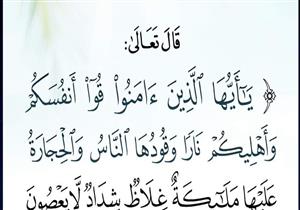 قَالَ تَعَالَىٰ:
﴿ يَٰٓأَيُّهَا ٱلَّذِينَ ءَامَنُوا۟ قُوٓا۟ أَنفُسَكُمْ
وَأَهْلِيكُمْ نَارًا وَقُودُهَا ٱلنَّاسُ وَٱلْحِجَارَةُ
عَلَيْهَا مَلَٰٓئِكَةٌ غِلَاظٌ شِدَادٌ لَّا يَعْصُونَ